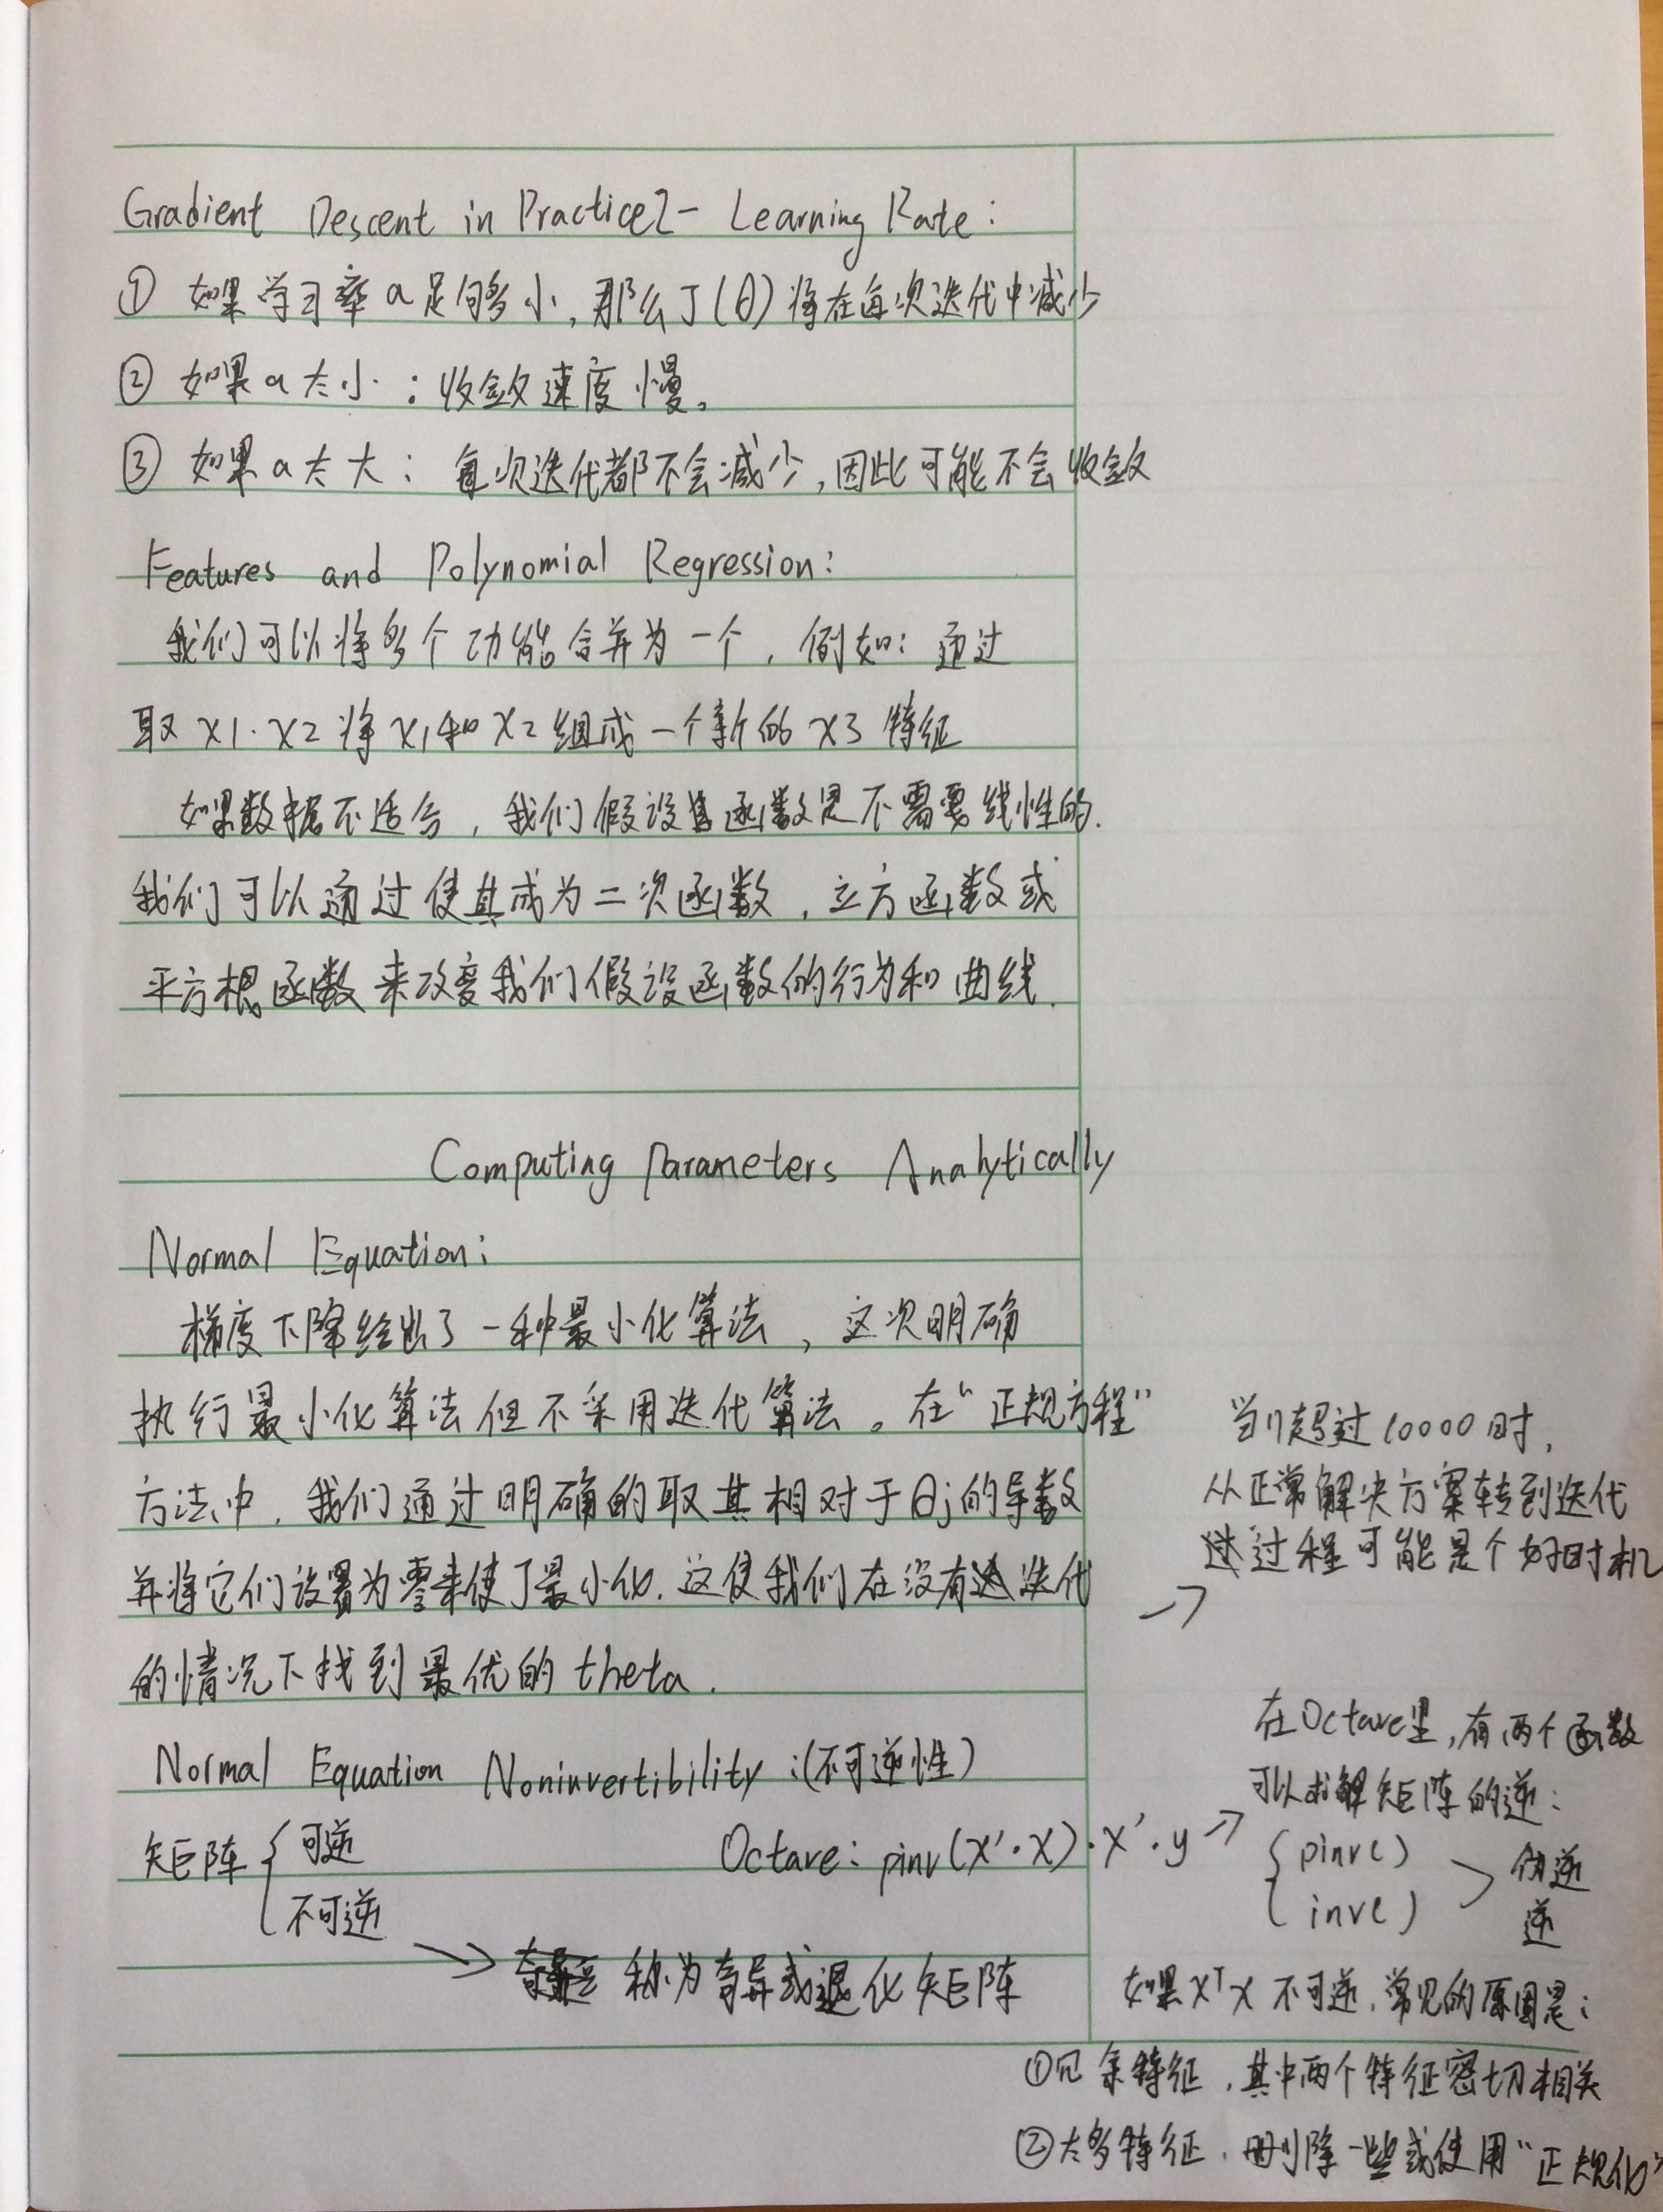 Gradient Descent in Practice2- Learning Rate:
① 如果学习率α足够小,那么J(θ)将在每次迭代中减少
② 如果α太小:收敛速度慢。
③ 如果α太大:每次迭代都不会减少,因此可能不会收敛
Features and Polynomial Regression:
我们可以将多个功能合并为一个,例如:通过
取x1·x2将x1和x2组成一个新的x3特征
如果数据不适合,我们假设函数是不需要线性的.
我们可以通过使其成为二次函数,立方函数或
平方根函数来改变我们假设函数的行为和曲线.
Computing Parameters Analytically
Normal Equation:
梯度下降给出了一种最小化算法,这次明确
执行最小化算法但不采用迭代算法。在“正规方程”
方法中,我们通过明确的取其相对于θj的导数
并将它们设置为零来使J最小化.这使我们在没有迭代
的情况下找到最优的theta.
当n超过10000时,
从正常解决方案转到迭代
过程可能是个好时机
→
Normal Equation Noninvertibility:(不可逆性)
矩阵{可逆
不可逆
Octare: pinv(X'·X)·X'·y→
→称为奇异或退化矩阵
在Octave里,有两个函数
可以求解矩阵的逆:
{pinv() > 伪逆
inv() 逆
如果XᵀX不可逆,常见的原因是:
①冗余特征,其中两个特征密切相关
②太多特征,删除一些或使用“正规化”